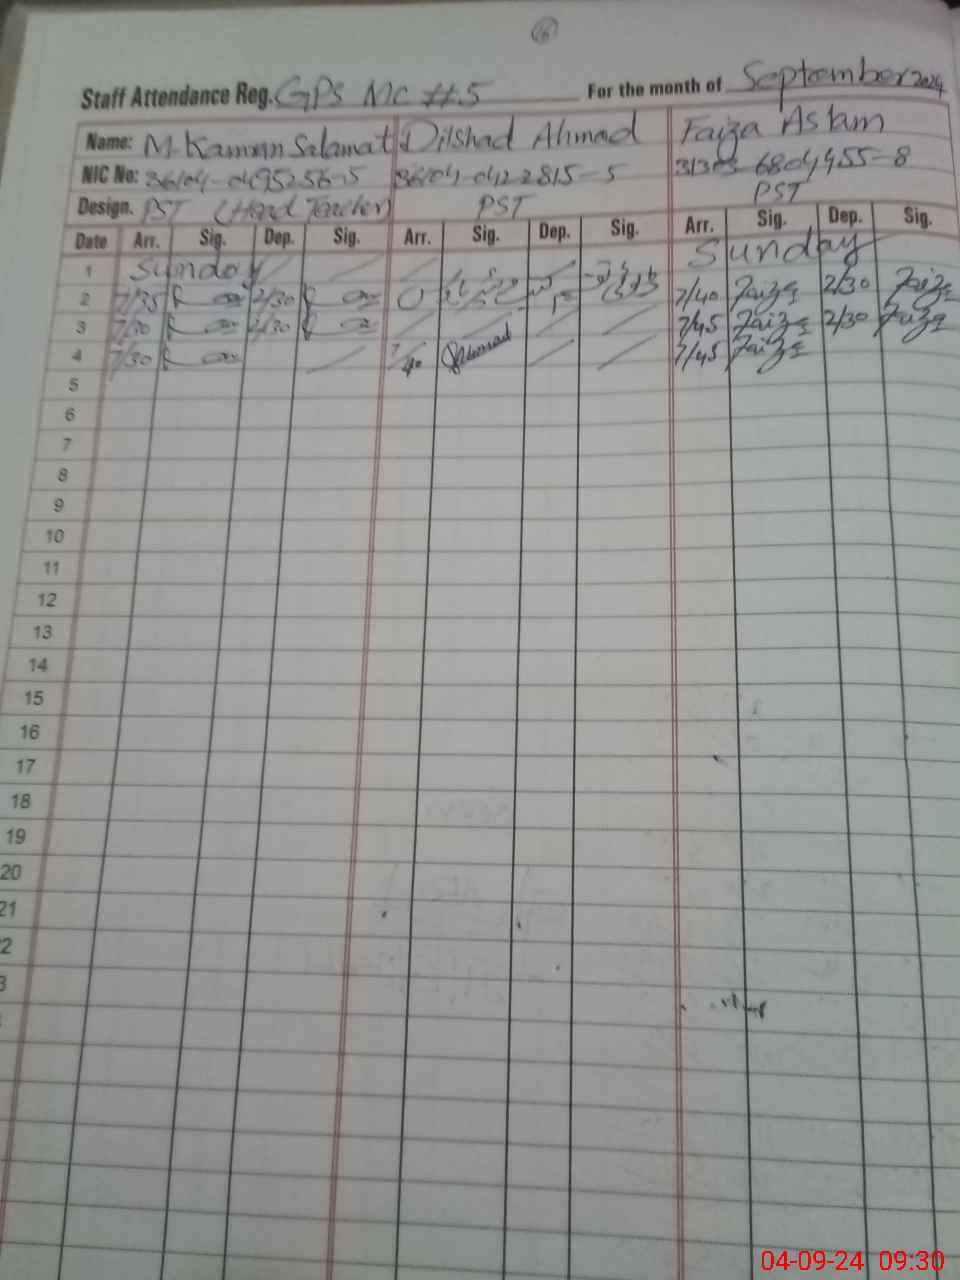 16
Staff Attendance Reg. GPS MC #5 For the month of September 2024
Name: M. Kamran Salamat Dilshad Ahmad Faiza Aslam
NIC No: 36104-0495256-5 36104-0422815-5 31303-6804455-8
Design. PST (Head Teacher) PST PST
Date Arr. Sig. Dep. Sig. Arr. Sig. Dep. Sig. Arr. Sig. Dep. Sig.
1 Sunday Sunday
2 7/35 2/30 7/40 Faiza 2/30 Faiza
3 7/30 2/30 7/45 Faiza 2/30 Faiza
4 7/30 7/40 Ahmad 7/45 Faiza
5
6
7
8
9
10
11
12
13
14
15
16
17
18
19
20
21
2
3
04-09-24 09:30